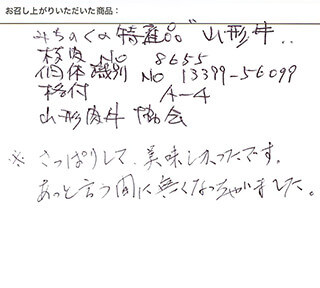 お召し上がりいただいた商品：
みちのくの特産品"山形牛..
枝肉 NO 8655
個体識別 NO 13399-56099
格付 A-4
山形肉牛協会
※ さっぱりして、美味しかったです。
あっと言う間に無くなっちゃいました。